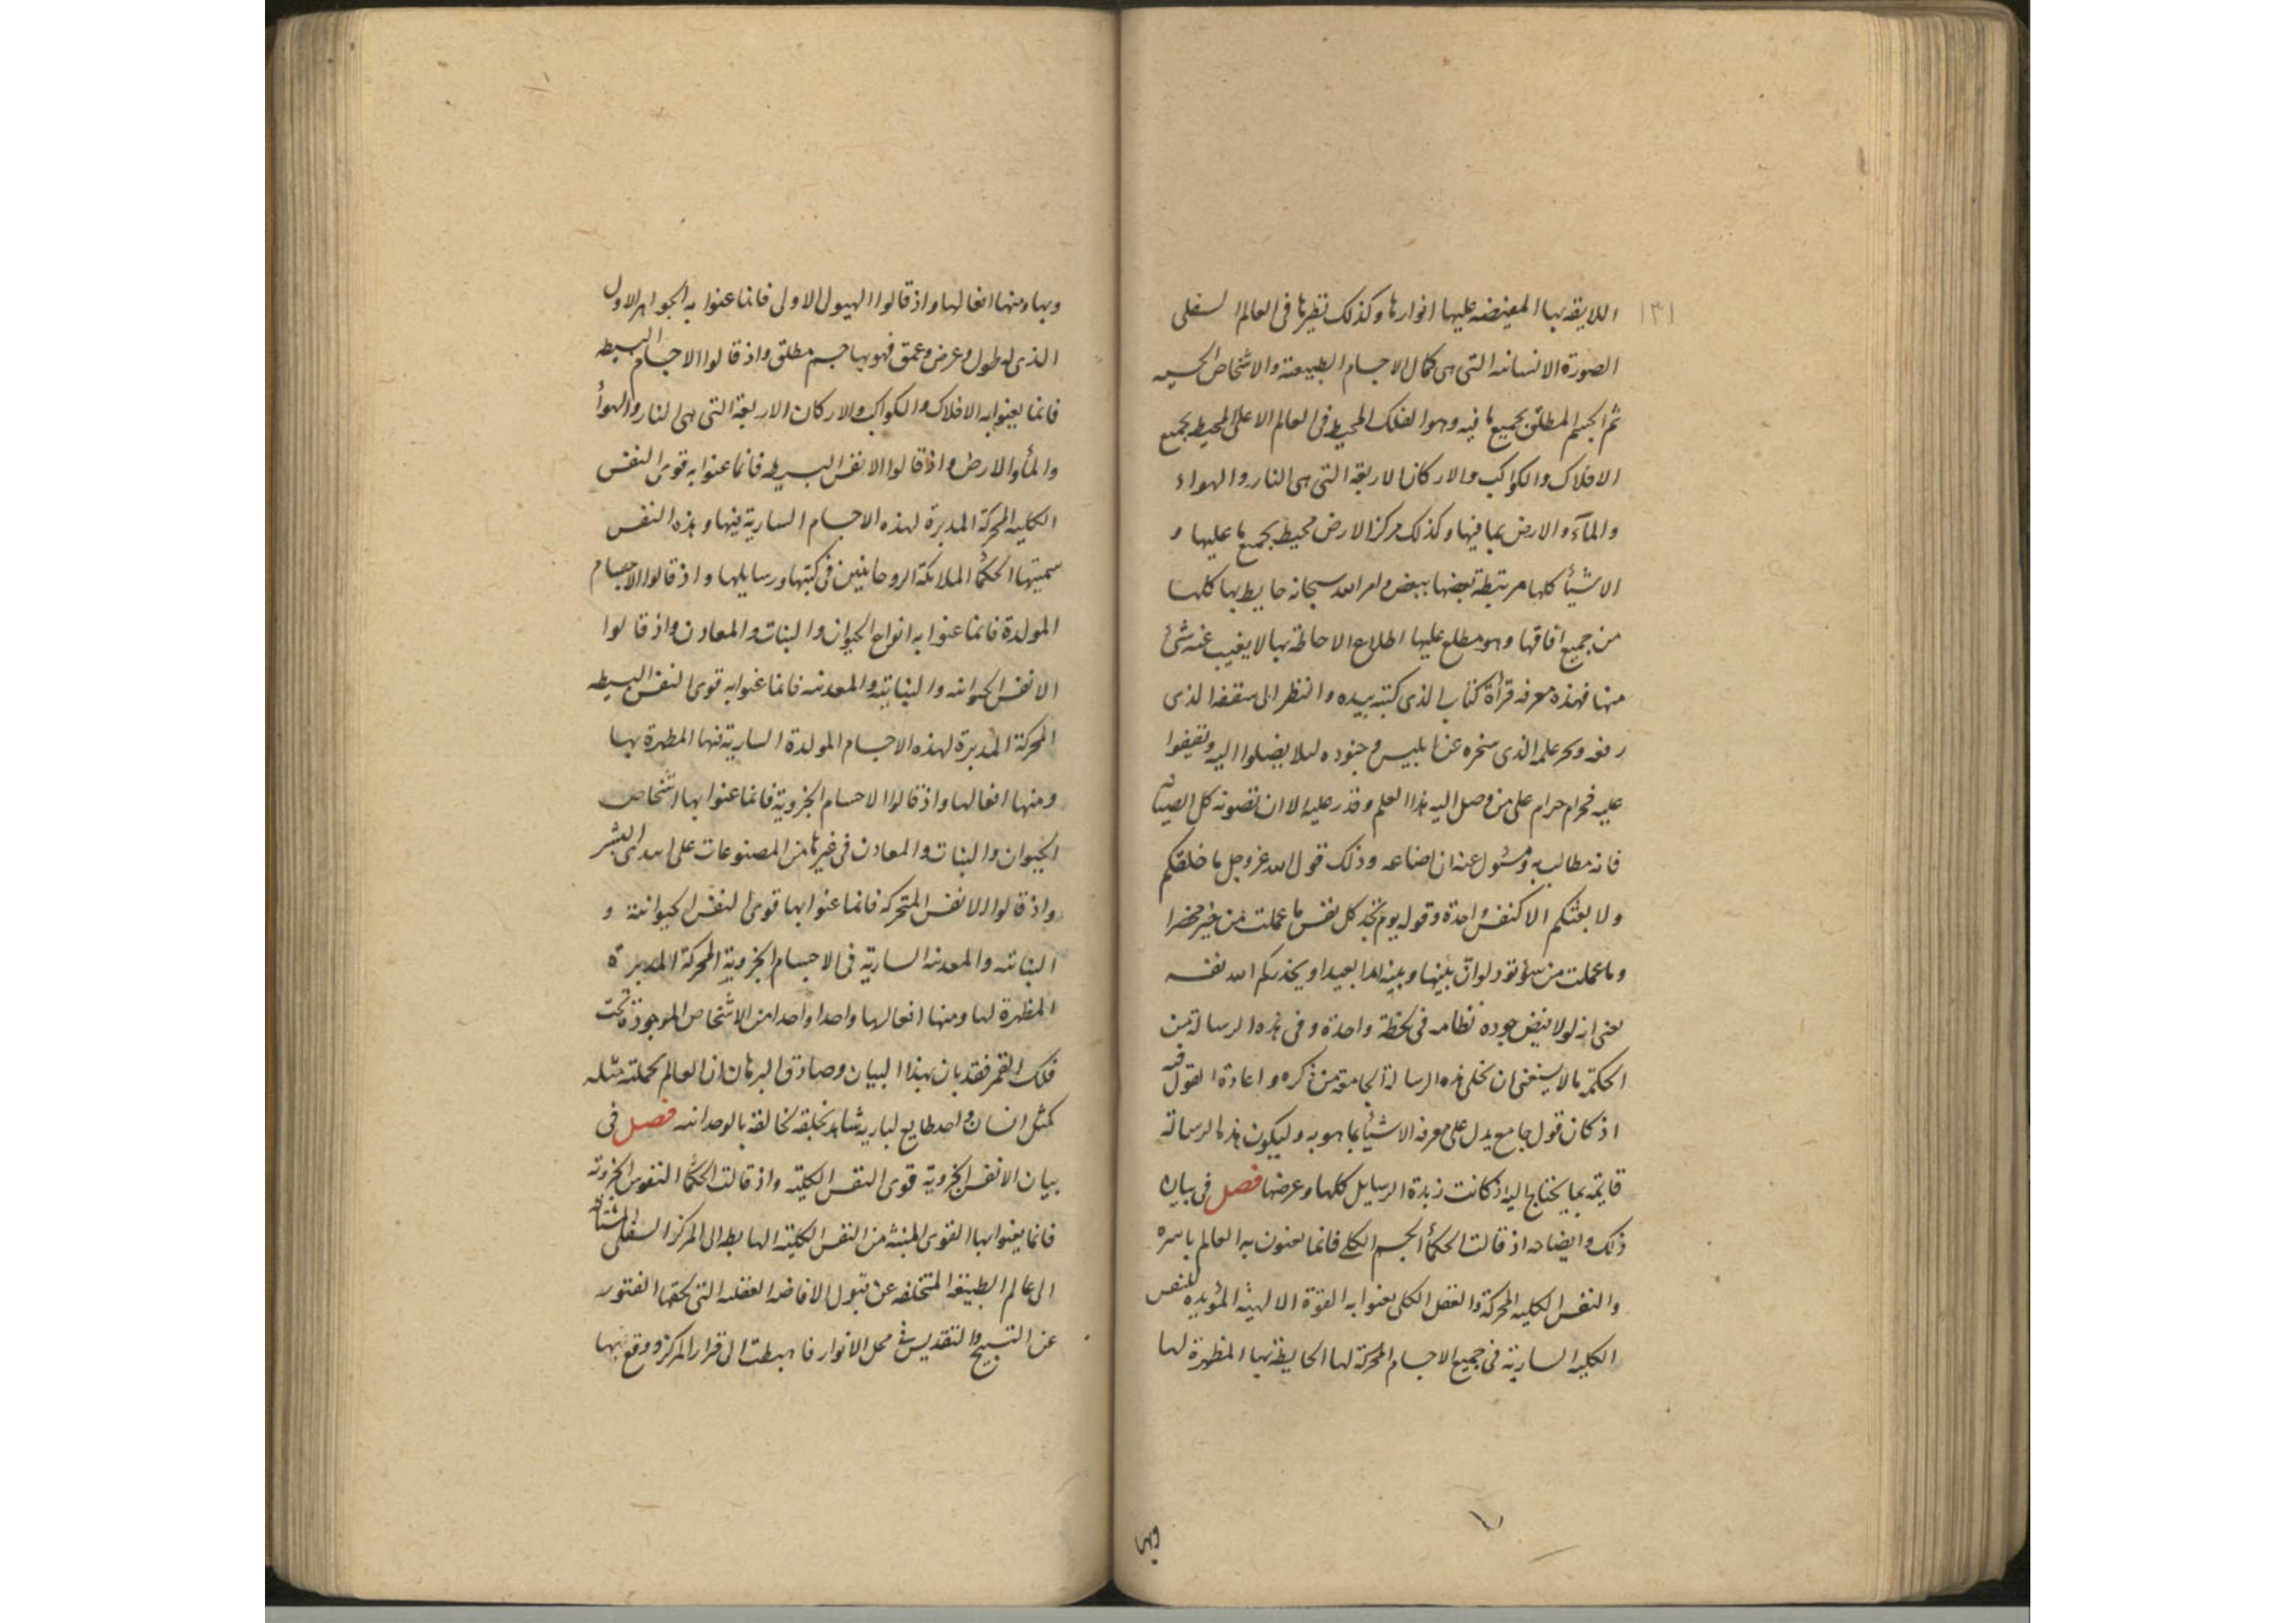 اللايقه بها المفيضه عليها انوارها وكذلك نظيرها فى العالم السفلى
١٣١
الصورة الانسانيه التى هى كمال الاجسام الطبيعية والاشخاص الحسيه
ثم الجسم المطلق بجميع ما فيه وهو الفلك المحيط فى العالم الاعلى المحيط بجميع
الافلاك والكواكب والاركان الاربعة التى هى النار والهواء
والمآء والارض بما فيها وكذلك مركز الارض محيط بجميع ما عليها و
الاشيأ كلها مرتبطة بعضها ببعض وامر الله سبحانه حايط بها كلها
من جميع افاقها وهو مطلع عليها اطلاع الاحاطة بها لا يغيب عنه شئ
منها فهذه معرفه قرأة كتاب الذى كتبه بيده والنظر الى سقفه الذى
رفعه وبحر علمه الذى سخره عن ابليس وجنوده ليلا يصلوا اليه ويقفوا
عليه فحرام حرام على من وصل اليه هذا العلم وقدر عليه الا ان تصونه كل الصيانه
فانه مطالب به ومسئول عنه ان اضاعه وذلك قول الله عز وجل ما خلقكم
ولا بعثكم الا كنفس واحدة وقوله يوم تجد كل نفس ما عملت من خير محضرا
وما عملت من سوء تود لو ان بينها وبينه امدا بعيدا ويحذركم الله نفسه
يعنى انه لولا فيض جوده نظامه فى لحظة واحدة وفى هذه الرسالة من
الحكمة ما لا يستغنى ان تخلى هذه الرسالة الجامعة من ذكره واعادة القول فيه
اذ كان قول جامع يدل على معرفة الاشيأ بما هو به وليكون هذه الرسالة
قايمه بما يحتاج اليه اذ كانت زبدة الرسايل كلها وغرضها فصل فى بيان
ذلك وايضاحه اذ قالت الحكمأ الجسم الكلى فانما يعنون به العالم باسره
والنفس الكليه المحركة والعقل الكلى يعنوا به القوة الالهية المؤيده للنفس
الكليه السارية فى جميع الاجسام المحركة لها الحايطة بها المظهرة لها
وبها
وبها ومنها افعالها واذ قالوا الهيولى الاولى فانما عنوا به الجواهر الاول
الذى له طول وعرض وعمق فهو بها جسم مطلق واذ قالوا الاجسام البسيطه
فانما يعنوا به الافلاك والكواكب والاركان الاربعة التى هى النار والهوأ
والمأ والارض واذ قالوا الانفس البسيطه فانما عنوا به قوى النفس
الكليه المحركة المدبرة لهذه الاجسام السارية فيها وهذه النفس
سميتها الحكمأ الملائكة الروحانيين فى كتبها ورسايلها واذ قالوا الاجسام
المولدة فانما عنوا به انواع الحيوان والنبات والمعادن واذ قالوا
الانفس الحيوانيه والنباتية والمعدنيه فانما عنوا به قوى النفس البسيطه
المحركة المدبرة لهذه الاجسام المولدة السارية فيها المظهرة بها
ومنها افعالها واذ قالوا الاجسام الجزوية فانما عنوا بها اشخاص
الحيوان والنبات والمعادن فى غيرها من المصنوعات على ايدى البشر
واذ قالوا الانفس المتحركه فانما عنوا بها قوى النفس الحيوانية و
النباتيه والمعدنيه السارية فى الاجسام الجزوية المحركة المدبرة
المظهرة لها ومنها افعالها واحدا واحدا من الاشخاص الموجودة تحت
فلك القمر فقد بان بهذا البيان وصادق البرهان ان العالم بجملته مثله
كمثل انسان واحد طايع لباريه شاهد بخلقه لخالقه بالوحدانيه فصل فى
بيان الانفس الجزوية قوى النفس الكلية واذ قالت الحكمأ النفوس الجزوية
فانما يعنوا بها القوى المنبثه من النفس الكلية الهابطه الى المركز السفلى المشتاقه
الى عالم الطبيعة المتخلفه عن قبول الافاضه العقليه التى لحقها الفتور
عن التسبيح والتقديس فى محل الانوار فاهبطت الى قرار المركز ووقع بها